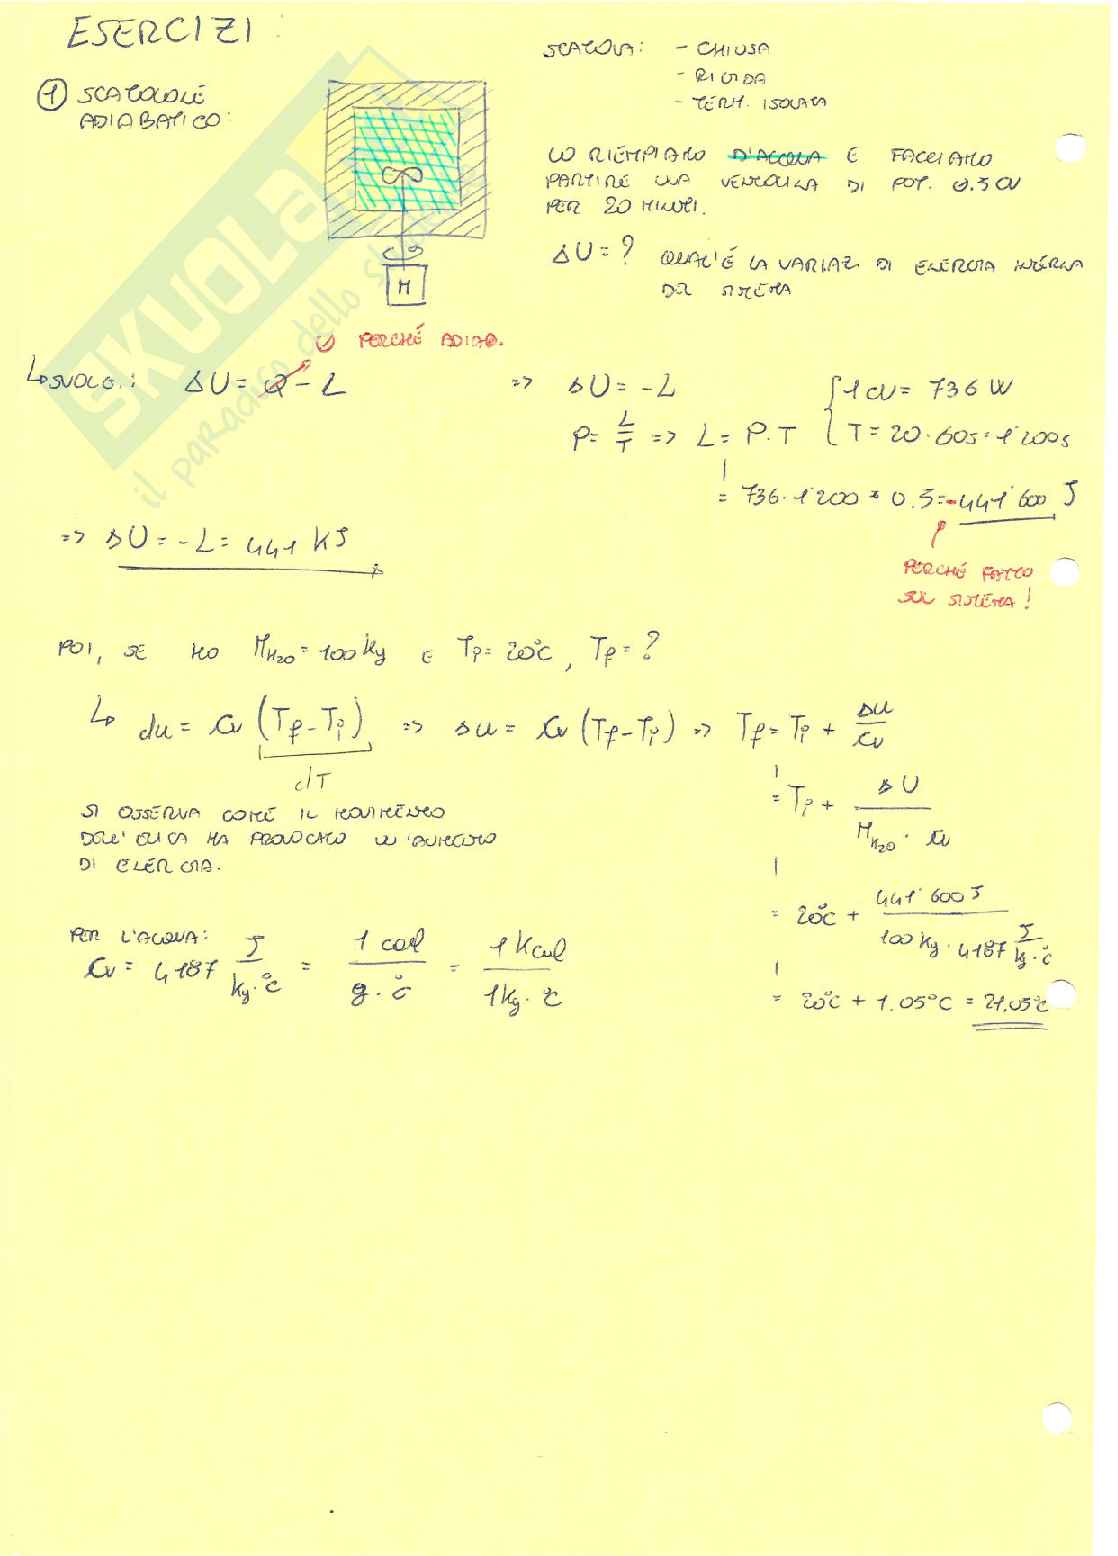 ESERCIZI:
① SCATOLONE
ADIABATICO:
SCATOLA: - CHIUSA
- RIGIDA
- TERM. ISOLATA
LO RIEMPIAMO D'ACQUA E FACCIAMO
PARTIRE UNA VENTOLINA DI POT. 0.5 CV
PER 20 MINUTI.
ΔU = ? QUAL'È LA VARIAZ. DI ENERGIA INTERNA
DEL SISTEMA
M
SKUOLA
il paradiso dello
0 PERCHÉ ADIAB.
↳ SVOLG.: ΔU = Q - L => ΔU = -L { 1 CV = 736 W
P = L/T => L = P·T { T = 20·60s = 1'200s
= 736·1'200 * 0.5 = -441'600 J
=> ΔU = -L = 441 kJ
PERCHÉ FATTO
SUL SISTEMA!
POI, SE HO M_H2O = 100 kg E Ti = 20°C, Tf = ?
↳ du = cv (Tf - Ti) => Δu = cv (Tf - Ti) => Tf = Ti + Δu/cv
dT
= Ti + ΔU/(M_H2O · cv)
SI OSSERVA COME IL MOVIMENTO
DELL'ELICA HA PROVOCATO UN AUMENTO
DI ENERGIA.
= 20°C + 441'600 J/(100 kg · 4187 J/kg·°C)
PER L'ACQUA:
cv = 4187 J/kg·°C = 1 cal/g·°C = 1 Kcal/1 kg·°C
= 20°C + 1.05°C = 21.05°C